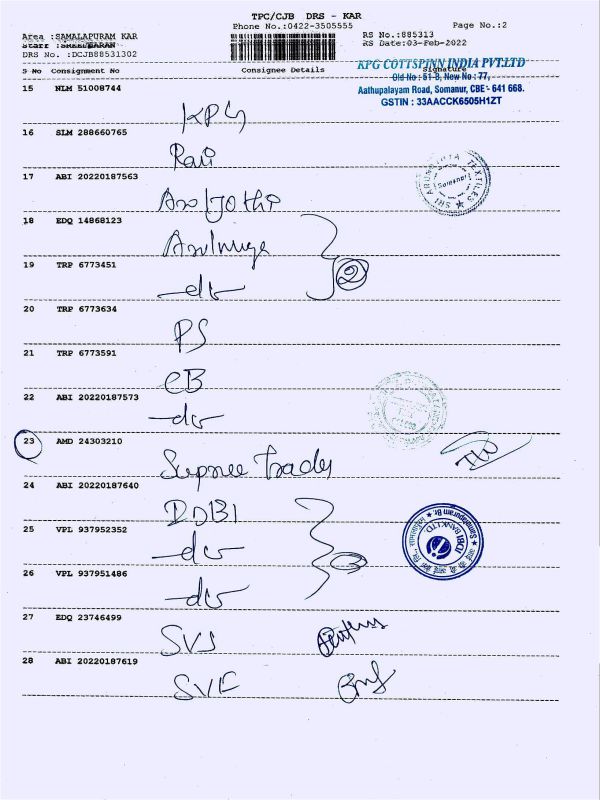 TPC/CJB DRS - KAR
Phone No.:0422-3505555
Page No.:2
Area :SAMALAPURAM KAR
RS No.:885313
DRS No. :DCJB88531302
RS Date:03-Feb-2022
S No Consignment No Consignee Details Signature
KPG COTTSPINN INDIA PVT.LTD
Old No : 51-B, New No : 77,
Aathupalayam Road, Somanur, CBE - 641 668.
GSTIN : 33AACCK6505H1ZT
15 NLM 51008744
KPG
16 SLM 288660765
Ravi
17 ABI 20220187563
Arul Jothi
SRI ARUNJOTHI TEXTILES
Somanur
18 EDQ 14868123
19 TRP 6773451
-do-
2
20 TRP 6773634
PS
21 TRP 6773591
CB
22 ABI 20220187573
-do-
23 AMD 24303210
Supree Traders
24 ABI 20220187640
IDBI
IDBI BANK LTD
Samalapuram Br
25 VPL 937952352
-do-
3
26 VPL 937951486
-do-
27 EDQ 23746499
SVS
28 ABI 20220187619
SVE